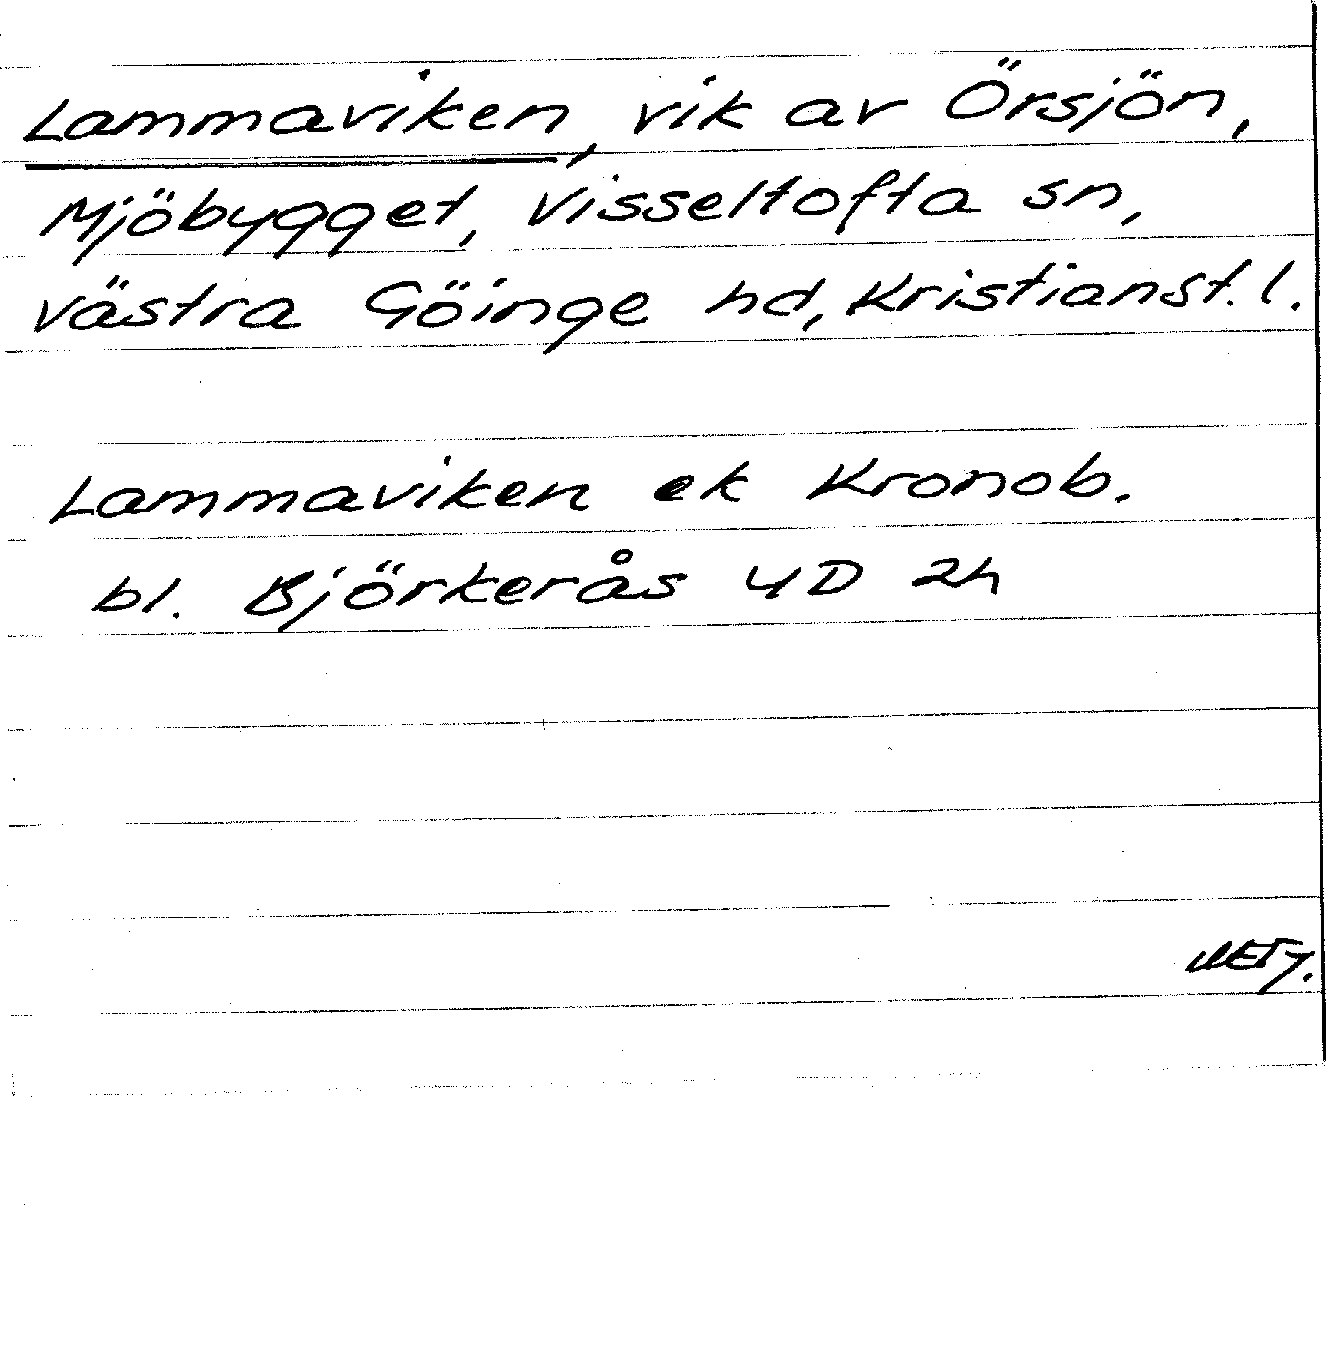 Lammaviken, vik av Örsjön,
Mjöbygget, Visseltofta sn,
västra Göinge hd, Kristianst. l.
Lammaviken ek Kronob.
bl. Björkerås 4D 2h